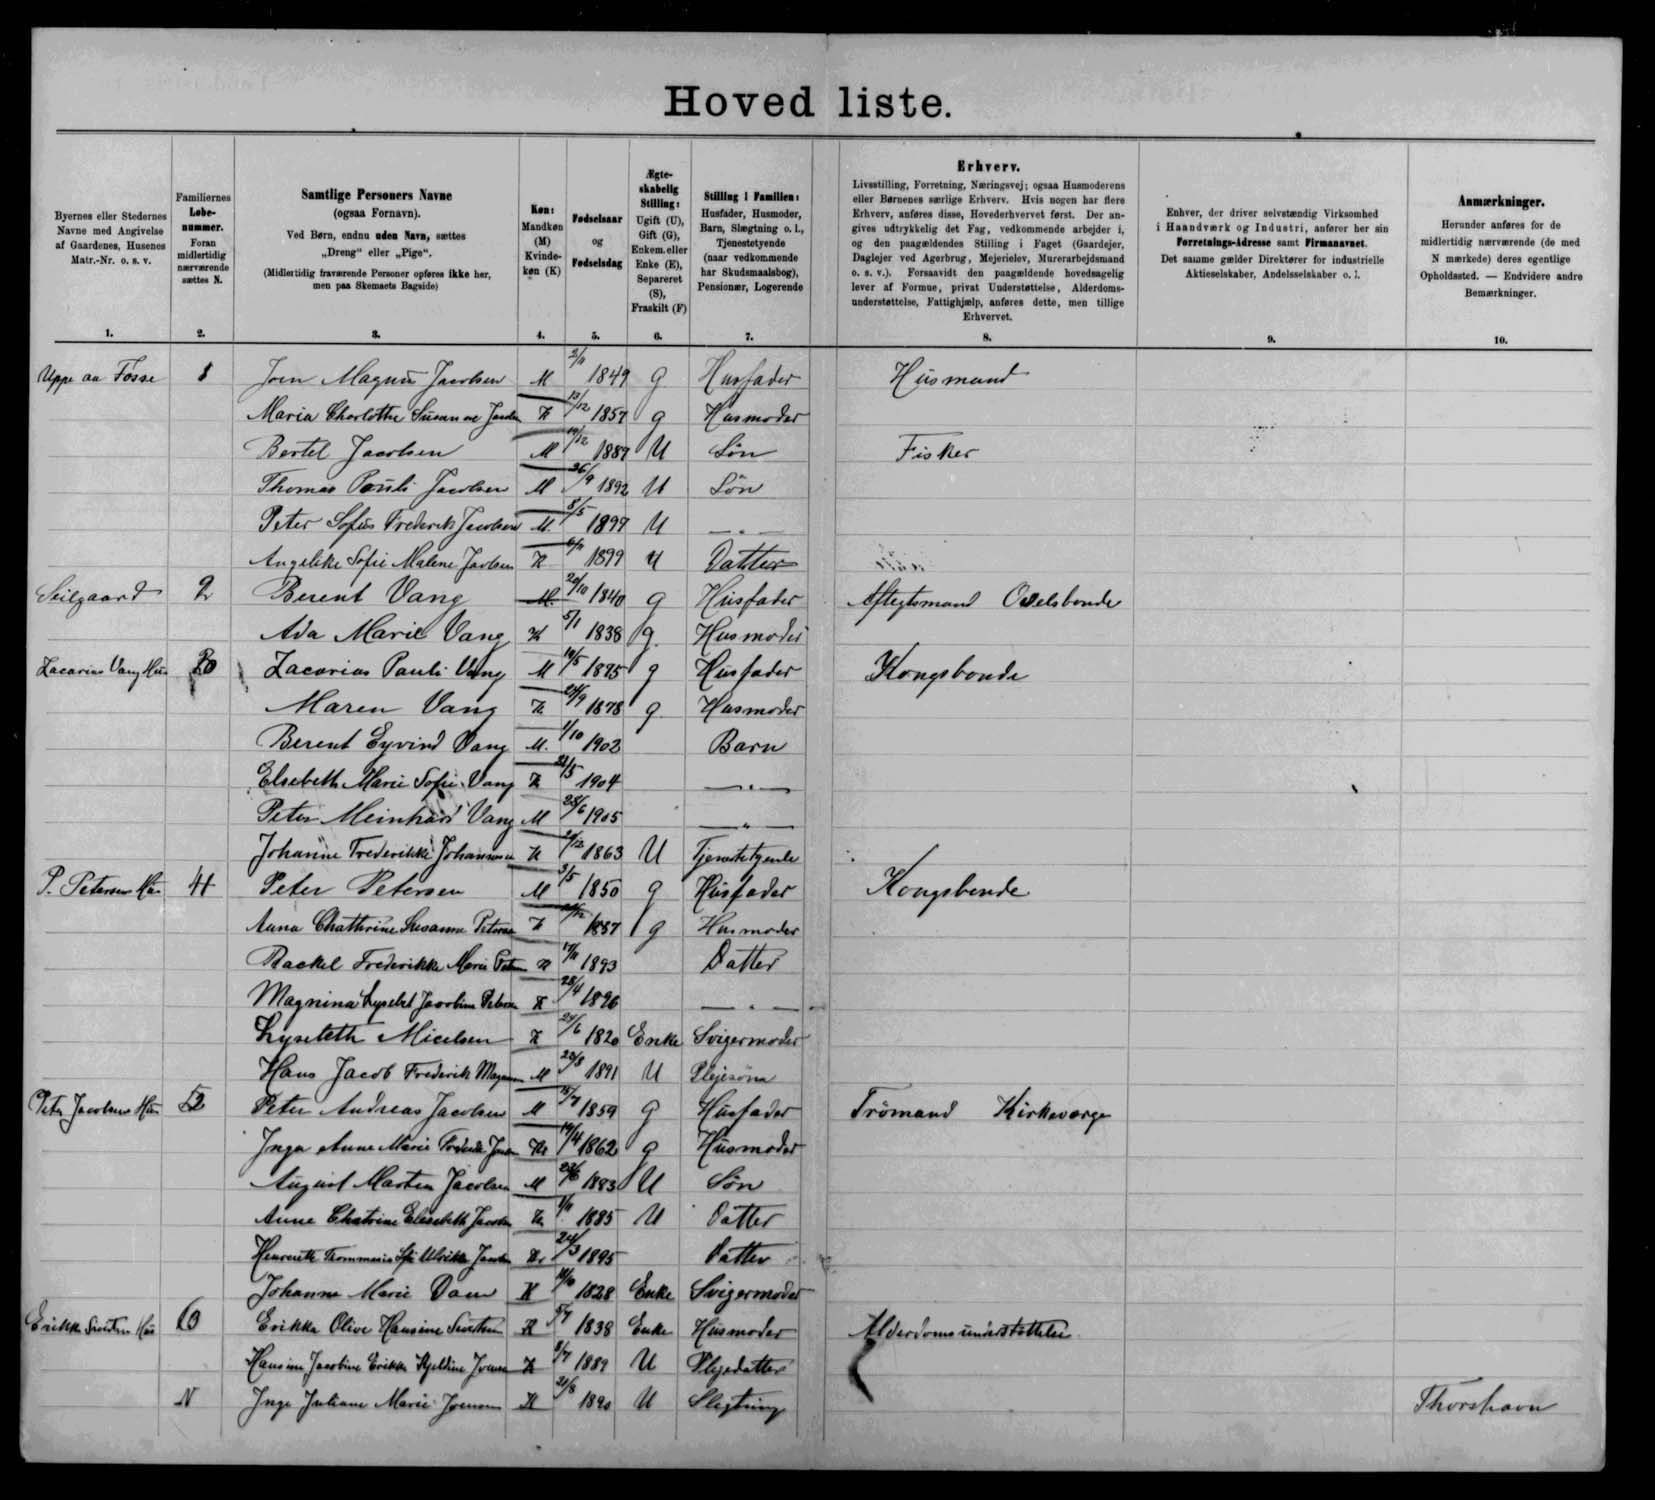 Hoved liste.
Byernes eller Stedernes Navne med Angivelse af Gaardenes, Husenes Matr.-Nr. o. s. v.
Familiernes Løbenummer. Foran midlertidig nærværende sættes N.
Samtlige Personers Navne (ogsaa Fornavn). Ved Børn, endnu uden Navn, sættes „Dreng“ eller „Pige“. (Midlertidig fraværende Personer opføres ikke her, men paa Skemaets Bagside)
Køn: Mandkøn (M) Kvindekøn (K)
Fødselsaar og Fødselsdag
Ægteskabelig Stilling: Ugift (U), Gift (G), Enkem. eller Enke (E), Separeret (S), Fraskilt (F)
Stilling i Familien: Husfader, Husmoder, Barn, Slægtning o. l., Tjenestetyende (naar vedkommende har Skudsmaalsbog), Pensionær, Logerende
Erhverv. Livsstilling, Forretning, Næringsvej; ogsaa Husmoderens eller Børnenes særlige Erhverv. Hvis nogen har flere Erhverv, anføres disse, Hovederhvervet først. Der angives udtrykkelig det Fag, vedkommende arbejder i, og den paagældendes Stilling i Faget (Gaardejer, Daglejer ved Agerbrug, Mejerielev, Murerarbejdsmand o. s. v.). Forsaavidt den paagældende hovedsagelig lever af Formue, privat Understøttelse, Alderdomsunderstøttelse, Fattighjælp, anføres dette, men tillige Erhvervet.
Enhver, der driver selvstændig Virksomhed i Haandværk og Industri, anfører her sin Forretnings-Adresse samt Firmanavnet. Det samme gælder Direktører for industrielle Aktieselskaber, Andelsselskaber o. l.
Anmærkninger. Herunder anføres for de midlertidig nærværende (de med N mærkede) deres egentlige Opholdssted. — Endvidere andre Bemærkninger.
1. 2. 3. 4. 5. 6. 7. 8. 9. 10.
Uppe aa Fosse 1 Joen Magnus Jacobsen M 2/11 1849 g Husfader Husmand
Maria Charlotte Susanne K 13/12 1857 g Husmoder
Bertel Jacobsen M 19/12 1889 U Søn Fisker
Thomas Pauli Jacobsen M 26/9 1892 U Søn
Peter Sofus Frederik Jacobsen M. 8/5 1897 U — " —
Angelike Sofie Malene Jacobsen K 1899 U Datter
Seilgaard 2 Berent Vang M. 20/10 1840 g Husfader Aftegtsmand Odelsbonde
Ada Marie Vang K 5/1 1838 g. Husmoder
Zacarias Vang Hus Zacarias Pauli Vang M 1875 g Husfader Kongsbonde
Maren Vang K 24/9 1878 g. Husmoder
Berent Eyvind Vang M. 1/10 1902 Barn
Elsebeth Marie Sofie Vang K 1904 — " —
Peter Meinhard Vang M 28/6 1905 — " —
Johanne Frederikke Johannesen K 1863 U Tjenestetyende
P. Petersens Hus 4 Peter Petersen M 3/5 1850 g Husfader Kongsbonde
Anna Chathrine Susanne Petersen K 1857 g Husmoder
Rackel Frederikke Marie K 17/11 1893 Datter
Magnina Lysebet Jacobine Petersen K 28/4 1896 — " —
Lysebeth Micelsen K 24/6 1820 Enke Svigermoder
Hans Jacob Frederik M 22/8 1891 U Plejesøn
Peter Jacobsens Hus 5 Peter Andreas Jacobsen M 1859 g Husfader Trømand Kirkeverge
Inger Anne Marie K 19/4 1862 g Husmoder
August Morten Jacobsen M 1883 U Søn
Anne Chatrine Elesebeth Jacobsen K 1/11 1885 U Datter
K 24/3 1895 Datter
Johanne Marie Dam K 1828 Enke Svigermoder
Erikka Sivertsens Hus 6 Erikka Olive Hansine Sivertsen K 5/7 1838 Enke Husmoder Alderdomsunderstøttelse
Hansine Jacobine Erikka K 8/7 1889 U Plejedatter
N Inge Juliane Marie Joensen K 21/8 1890 U Slegtning Thorshavn